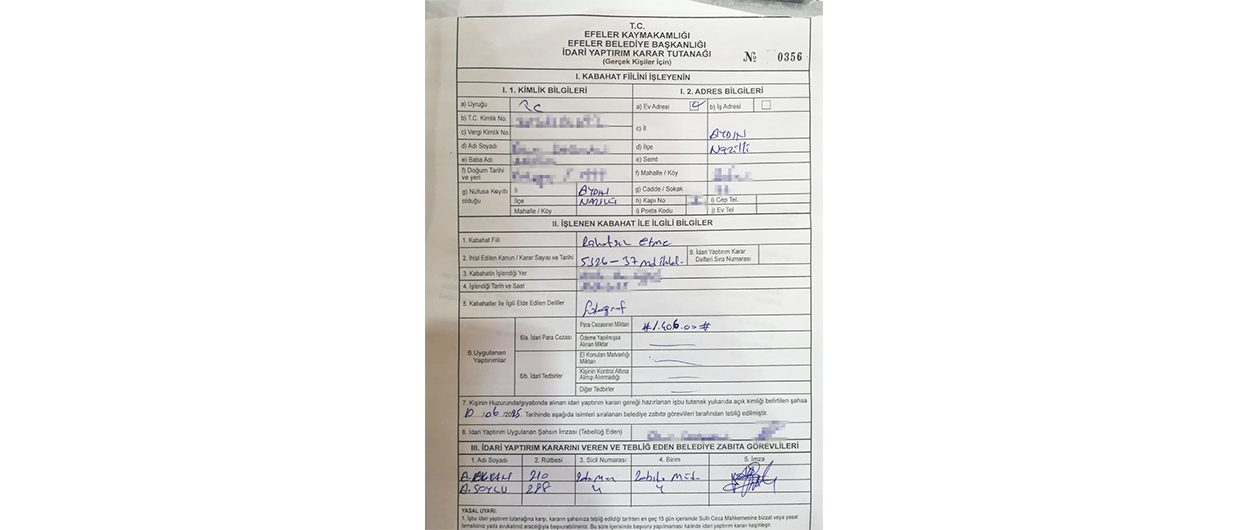 T.C.
EFELER KAYMAKAMLIĞI
EFELER BELEDİYE BAŞKANLIĞI
İDARİ YAPTIRIM KARAR TUTANAĞI
(Gerçek Kişiler İçin)
№ 0356
I. KABAHAT FİİLİNİ İŞLEYENİN
I. 1. KİMLİK BİLGİLERİ
I. 2. ADRES BİLGİLERİ
a) Uyruğu TC
a) Ev Adresi b) İş Adresi
b) T.C. Kimlik No.
c) Vergi Kimlik No.
c) İl AYDIN
d) Adı Soyadı
d) İlçe Nazilli
e) Baba Adı
e) Semt
f) Doğum Tarihi ve yeri
f) Mahalle / Köy
g) Nüfusa Kayıtlı olduğu
İl AYDIN
g) Cadde / Sokak
İlçe NAZİLLİ
h) Kapı No i) Cep Tel.
Mahalle / Köy
i) Posta Kodu j) Ev Tel
II. İŞLENEN KABAHAT İLE İLGİLİ BİLGİLER
1. Kabahat Fiili Rahatsız etme
2. İhlal Edilen Kanun / Karar Sayısı ve Tarihi 5326-37 md ihlal.
9. İdari Yaptırım Karar Defteri Sıra Numarası
3. Kabahatin İşlendiği Yer
4. İşlendiği Tarih ve Saat
5. Kabahatler İle İlgili Elde Edilen Deliller fotoğraf
6.Uygulanan Yaptırımlar
6/a. İdari Para Cezası
Para Cezasının Miktarı #1.406.00#
Ödeme Yapılmışsa Alınan Miktar
6/b. İdari Tedbirler
El Konulan Malvarlığı Miktarı
Kişinin Kontrol Altına Alınıp Alınmadığı
Diğer Tedbirler
7. Kişinin Huzurunda/gıyabında alınan idari yaptırım kararı gereği hazırlanan işbu tutanak yukarıda açık kimliği belirtilen şahsa
10/06/2025. Tarihinde aşağıda isimleri sıralanan belediye zabıta görevlileri tarafından tebliğ edilmiştir.
8. İdari Yaptırım Uygulanan Şahsın İmzası (Tebellüğ Eden)
III. İDARİ YAPTIRIM KARARINI VEREN VE TEBLİĞ EDEN BELEDİYE ZABITA GÖREVLİLERİ
1. Adı Soyadı 2. Rütbesi 3. Sicil Numarası 4. Birim 5. İmza
210
A. SOYLU 298
YASAL UYARI:
1. İşbu idari yaptırım tutanağına karşı, kararın şahsınıza tebliğ edildiği tarihten en geç 15 gün içerisinde Sulh Ceza Mahkemesine bizzat veya yasal
temsilciniz yada avukatınız aracılığıyla başvurabilirsiniz. Bu süre içerisinde başvuru yapılmaması halinde idari yaptırım kararı kesinleşir.